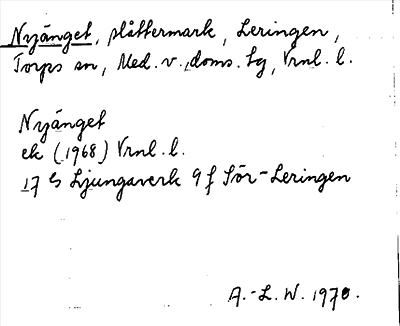 Nyänget, slåttermark, Leringen,
Torps sn, Med. v. doms. tg, Vrnl. l.
Nyänget
ek (1968) Vrnl. l.
17 G Ljungaverk 9 f Sör-Leringen
A.-L. W. 1970.